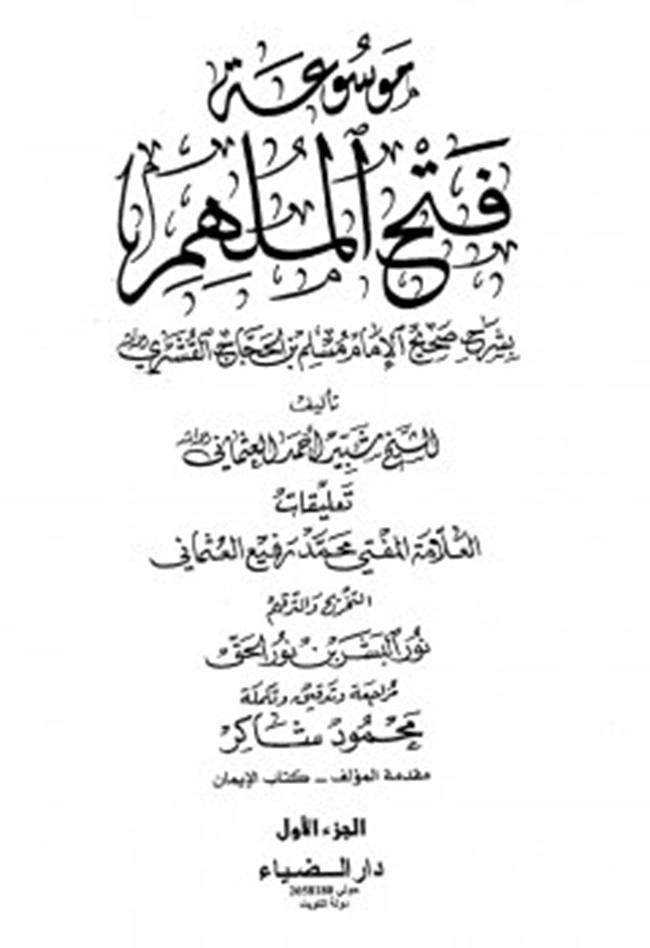 موسوعة
فتح الملهم
بشرح صحيح الإمام مسلم بن الحجاج القشيري
تأليف
الشيخ شبير أحمد العثماني
تعليقات
العلامة المفتي محمد رفيع العثماني
التخريج والترقيم
نور البشر بن نور الحق
مراجعة وتدقيق وتكملة
محمود شاكر
مقدمة المؤلف - كتاب الإيمان
الجزء الأول
دار الضياء
حولي 2658180
دولة الكويت